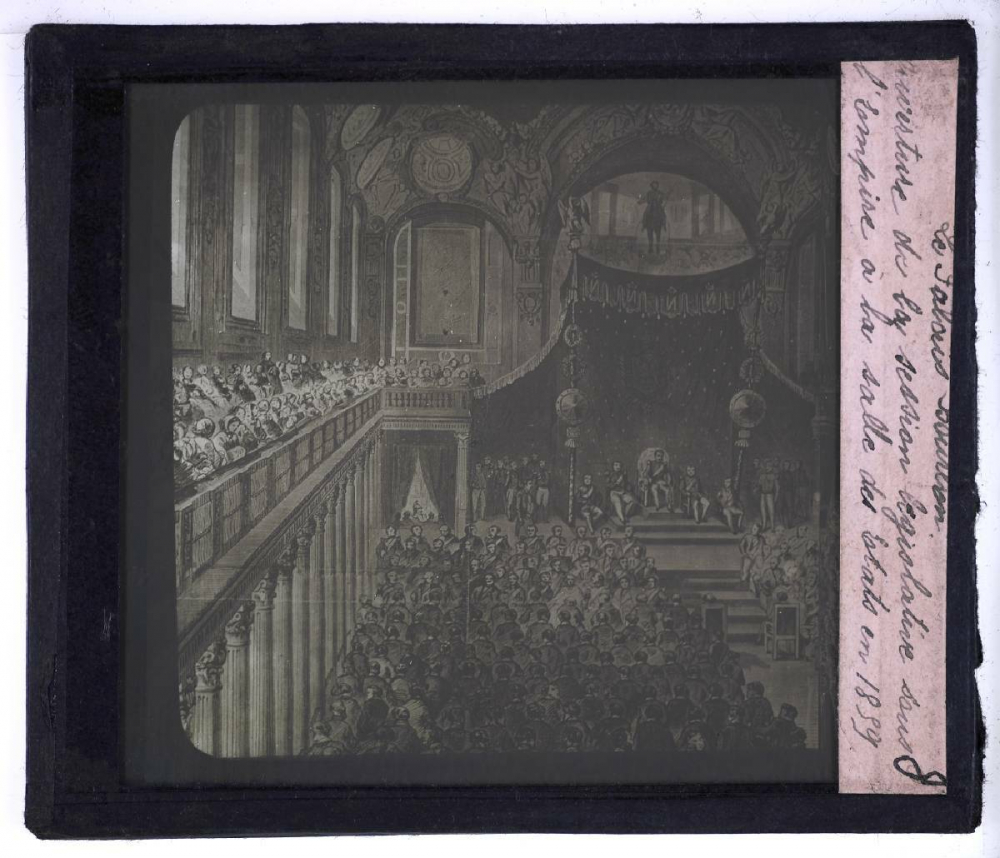 Le Palais
ouverture de la session législative sous
l'Empire à la salle des Etats en 1859
8